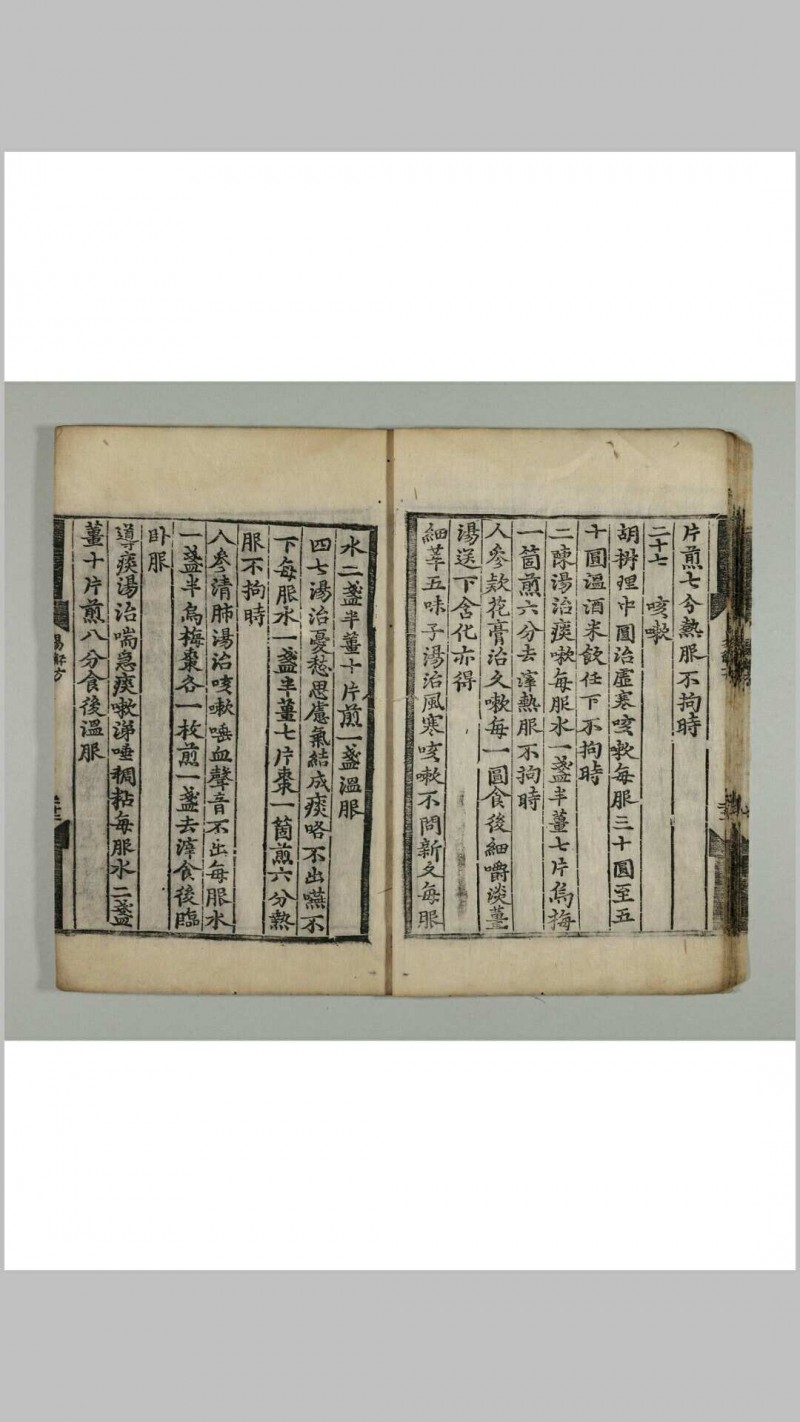 片煎七分熱服不拘時
二十七 咳嗽
胡椒理中圓治虛寒咳嗽每服三十圓至五
十圓溫酒米飲任下不拘時
二陳湯治痰嗽每服水一盞半薑七片烏梅
一箇煎六分去滓熱服不拘時
人參款花膏治久嗽每一圓食後細嚼淡薑
湯送下含化亦得
細莘五味子湯治風寒咳嗽不問新久每服
水二盞半薑十片煎一盞溫服
四七湯治憂愁思慮氣結成痰咯不出嚥不
下每服水一盞半薑七片棗一箇煎六分熱
服不拘時
人參清肺湯治咳嗽唾血聲音不出每服水
一盞半烏梅棗各一枚煎一盞去滓食後臨
卧服
導痰湯治喘急痰嗽涕唾稠粘每服水二盞
薑十片煎八分食後溫服